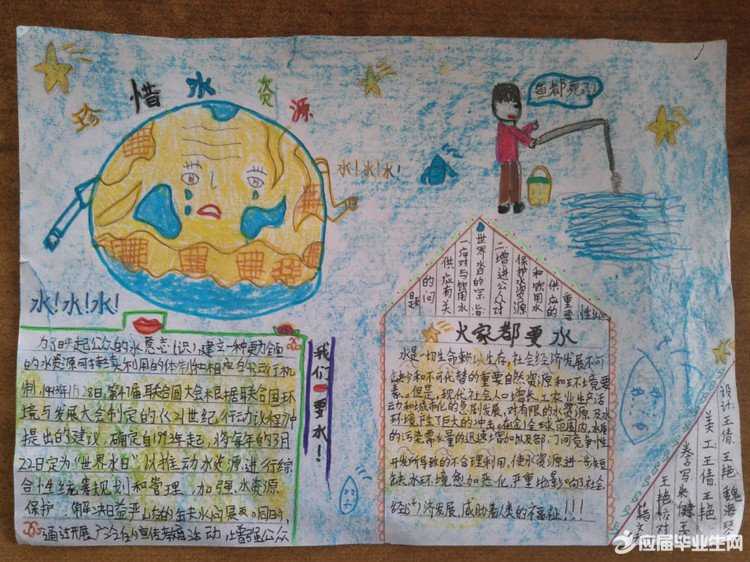 珍惜水资源
鱼都死了!
水!水!水!
水!水!水!
为了唤起公众的水意志(识),建立一种更为全面
的水资源可持续利用的体制和相应的运行机
制,1993年1月18日,第47届联合国大会根据联合国环
境与发展大会制定的《21世纪行动议程》中
提出的建议,确定自1993年起,将每年的3月
22日定为“世界水日”,以推动水资源进行综
合性统筹规划和管理,加强水资源
保护,解决日益严峻的缺水问题。同时,
通过开展广泛的宣传教育活动,增强公众
我们要水!
一应对与饮用水
供应有关
的问
题
世界水日的宗旨
二增进公众对
保护水资源
和饮用水
供应的
重要
性
大家都要水
水是一切生命赖以生存,社会经济发展不可
缺少和不可代替的重要自然资源和环境要
素。但是,现代社会人口增长、工农业生产活
动和城市化的急剧发展,对有限的水资源及水
环境产生巨大的冲击。在全球范围内,水质
的污染需水量的迅速增加以及部门间竞争性
开发所导致的不合理利用,使水资源进一步短
缺,水环境愈加恶化,严重地影响了社会
经济发展,威胁着人类的福祉!!!
设计:王倩 王艳 魏海
美工 王倩 王艳
应届毕业生网